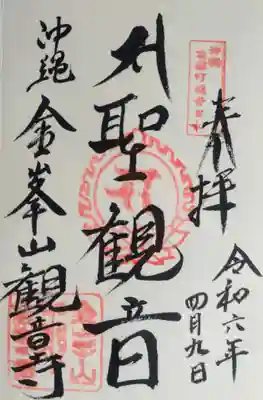 奉拝
令和六年
四月九日
聖観音
沖縄 金峯山観音寺